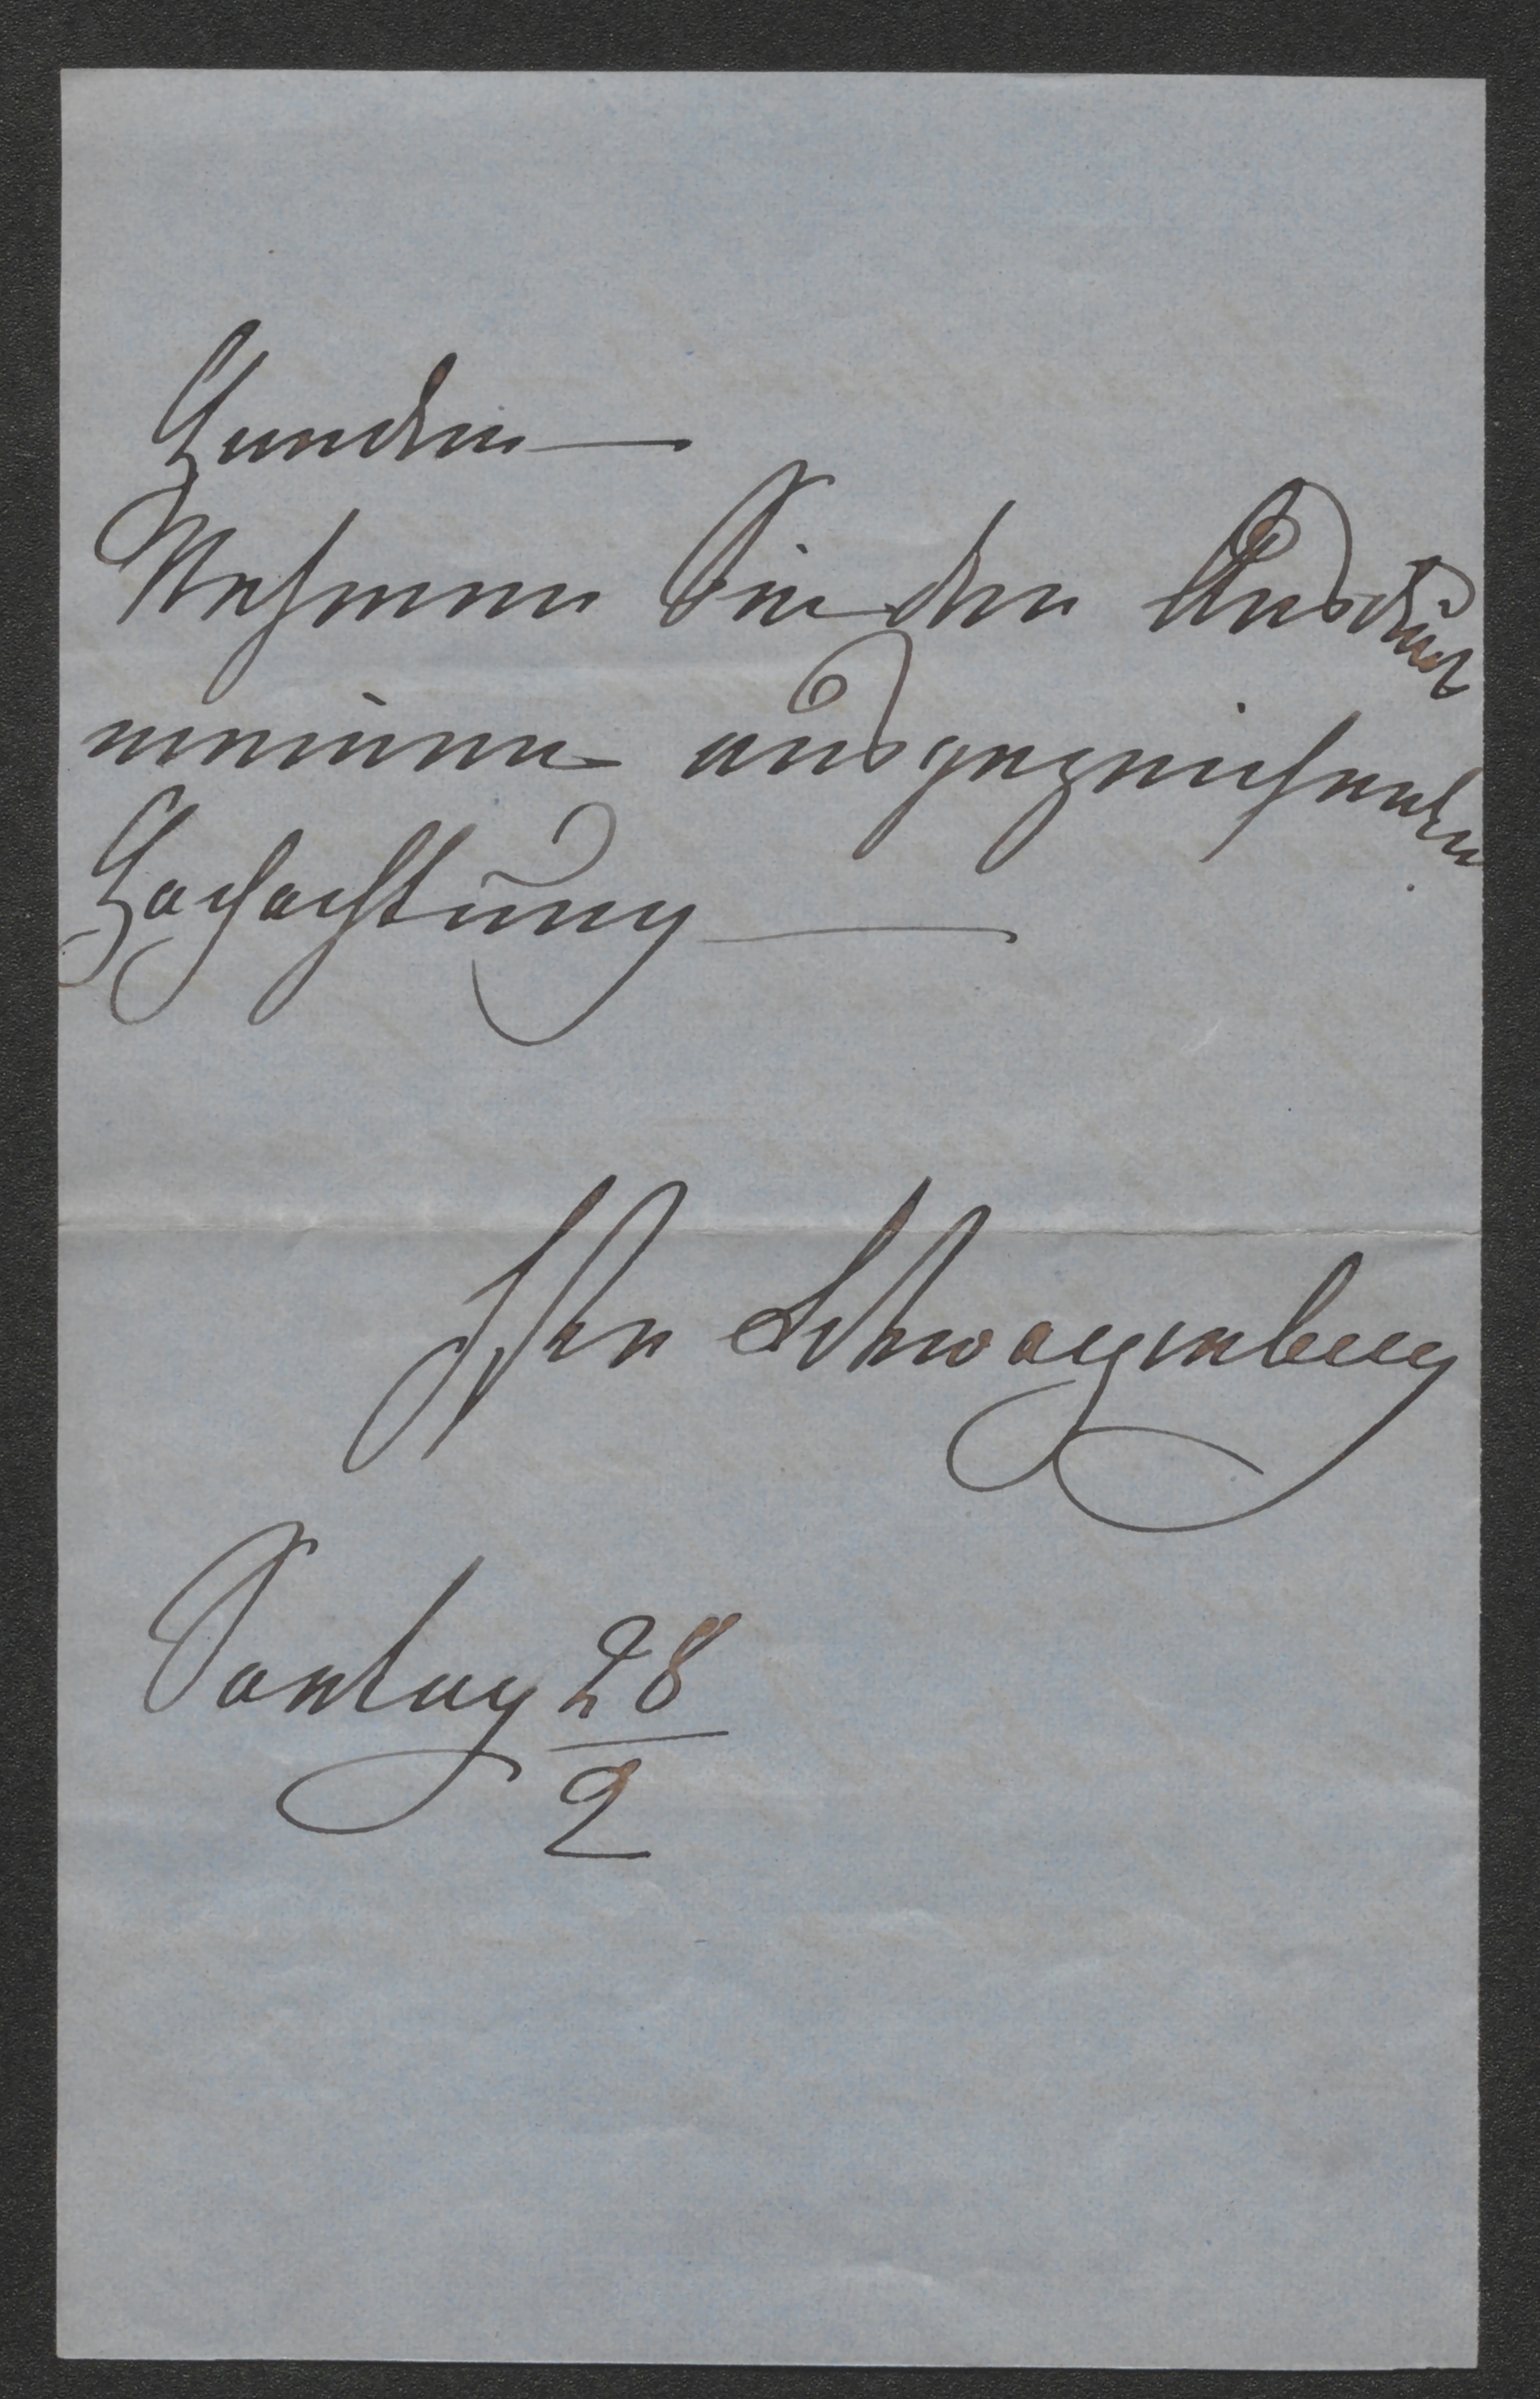 Handen —
Nehmen Sie den Ausdruck
meiner ausgezeichneten
Hochachtung —
Schwarzenberg
Sontag 28/2